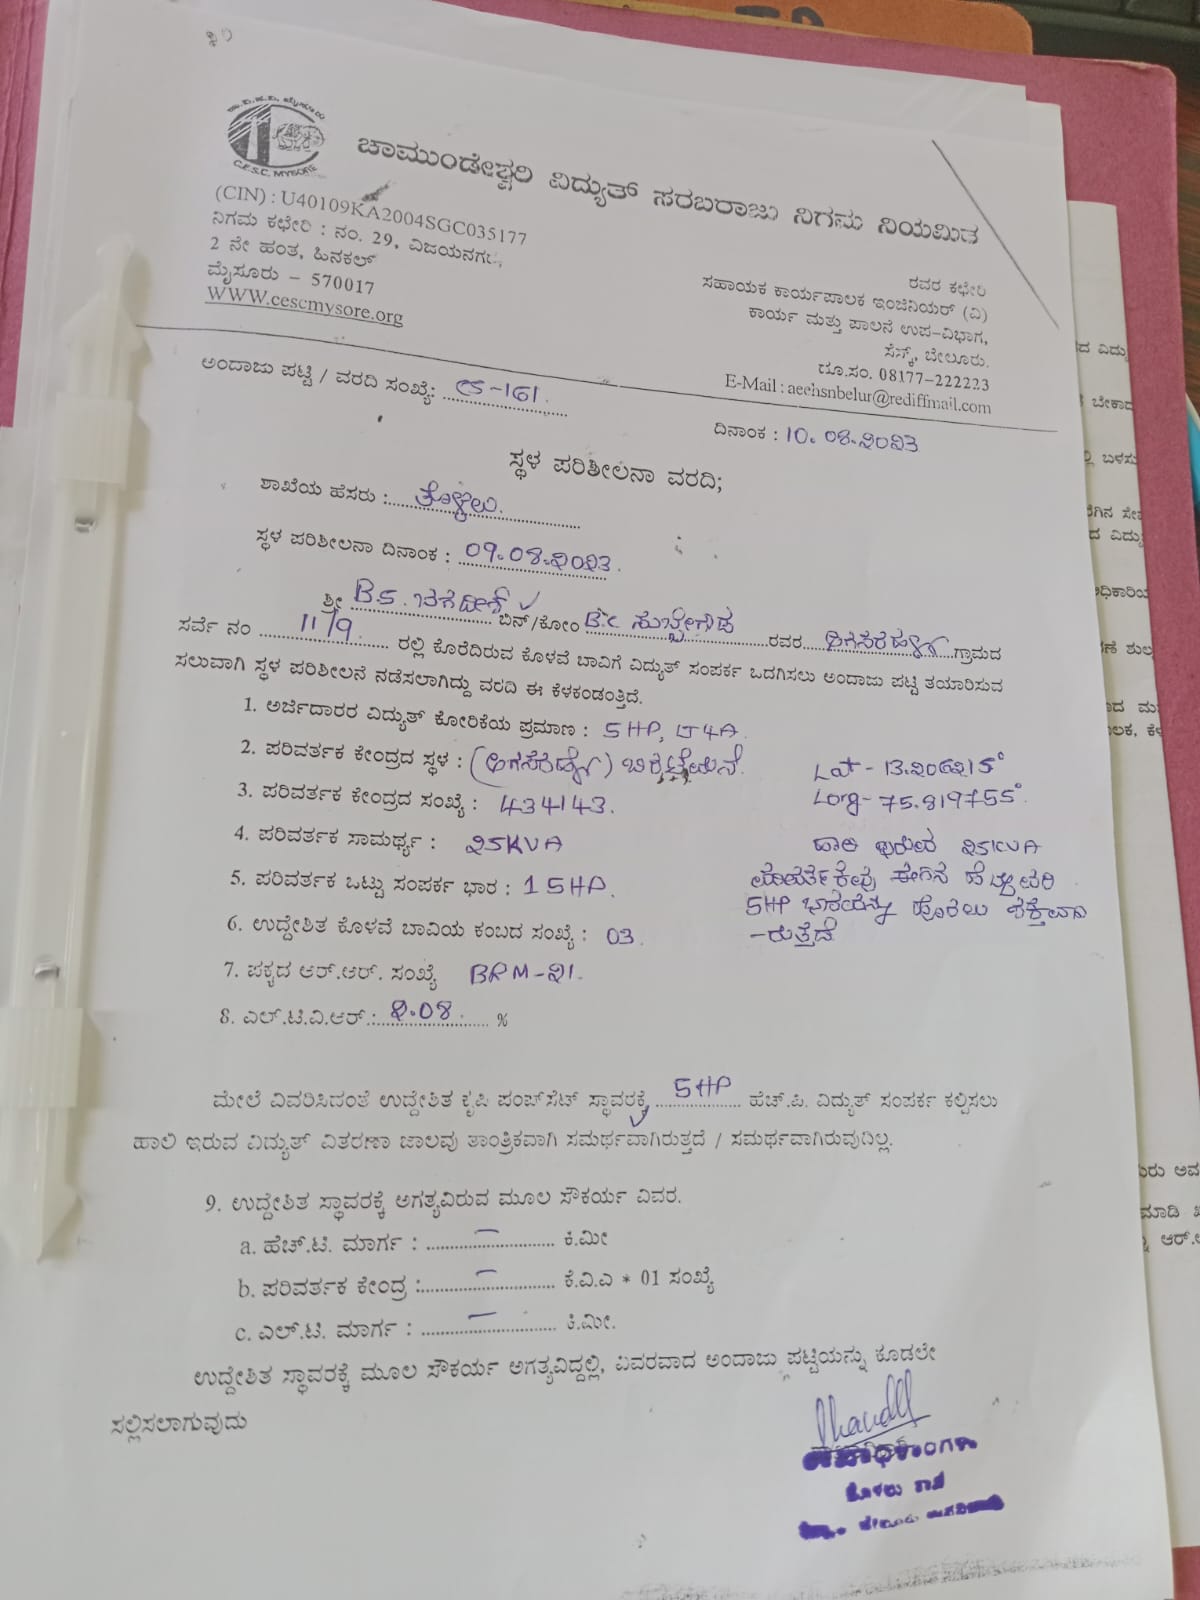 ಚಾ.ವಿ.ಸ.ನಿ. ಮೈಸೂರು
C.E.S.C. MYSORE
ಚಾಮುಂಡೇಶ್ವರಿ ವಿದ್ಯುತ್ ಸರಬರಾಜು ನಿಗಮ ನಿಯಮಿತ
(CIN) : U40109KA2004SGC035177
ನಿಗಮ ಕಛೇರಿ : ನಂ. 29, ವಿಜಯನಗರ,
2 ನೇ ಹಂತ, ಹಿನಕಲ್
ಮೈಸೂರು – 570017
WWW.cescmysore.org
ರವರ ಕಛೇರಿ
ಸಹಾಯಕ ಕಾರ್ಯಪಾಲಕ ಇಂಜಿನಿಯರ್ (ವಿ)
ಕಾರ್ಯ ಮತ್ತು ಪಾಲನೆ ಉಪ-ವಿಭಾಗ,
ಸೆಸ್ಕ್, ಬೇಲೂರು.
ದೂ.ಸಂ. 08177-222223
E-Mail : aeehsnbelur@rediffmail.com
ಅಂದಾಜು ಪಟ್ಟಿ / ವರದಿ ಸಂಖ್ಯೆ: CS-161
ದಿನಾಂಕ : 10.08.೨೦೨3
ಸ್ಥಳ ಪರಿಶೀಲನಾ ವರದಿ;
ಶಾಖೆಯ ಹೆಸರು : ತೊಳಲು.
ಸ್ಥಳ ಪರಿಶೀಲನಾ ದಿನಾಂಕ : 09.08.೨೦೨3.
ಶ್ರೀ B.S. ಜಗದೀಶ್ ಬಿನ್/ಕೋಂ B.C ಸುಬ್ಬೇಗೌಡ ರವರ ಗ್ರಾಮದ
ಸರ್ವೆ ನಂ 11/9 ರಲ್ಲಿ ಕೊರೆದಿರುವ ಕೊಳವೆ ಬಾವಿಗೆ ವಿದ್ಯುತ್ ಸಂಪರ್ಕ ಒದಗಿಸಲು ಅಂದಾಜು ಪಟ್ಟಿ ತಯಾರಿಸುವ
ಸಲುವಾಗಿ ಸ್ಥಳ ಪರಿಶೀಲನೆ ನಡೆಸಲಾಗಿದ್ದು ವರದಿ ಈ ಕೆಳಕಂಡಂತ್ತಿದೆ.
1. ಅರ್ಜಿದಾರರ ವಿದ್ಯುತ್ ಕೋರಿಕೆಯ ಪ್ರಮಾಣ : 5HP, LT4A
2. ಪರಿವರ್ತಕ ಕೇಂದ್ರದ ಸ್ಥಳ :
Lat - 13.೨06೨15°
3. ಪರಿವರ್ತಕ ಕೇಂದ್ರದ ಸಂಖ್ಯೆ : 434143.
Long- 75.819755°.
4. ಪರಿವರ್ತಕ ಸಾಮರ್ಥ್ಯ : ೨5KVA
ಹಾಲಿ ಇರುವ ೨5KVA
5. ಪರಿವರ್ತಕ ಒಟ್ಟು ಸಂಪರ್ಕ ಭಾರ : 15HP.
ಪರಿವರ್ತಕವು ಈಗಿನ ಹೆಚ್ಚುವರಿ
5HP ಭಾರವನ್ನು ಹೊರಲು ಶಕ್ತವಾಗಿ
-ರುತ್ತದೆ
6. ಉದ್ದೇಶಿತ ಕೊಳವೆ ಬಾವಿಯ ಕಂಬದ ಸಂಖ್ಯೆ : 03.
7. ಪಕ್ಕದ ಆರ್.ಆರ್. ಸಂಖ್ಯೆ BRM-೨1.
8. ಎಲ್.ಟಿ.ವಿ.ಆರ್.: ೨.08. %
ಮೇಲೆ ವಿವರಿಸಿದಂತೆ ಉದ್ದೇಶಿತ ಕೃಷಿ ಪಂಪ್‌ಸೆಟ್ ಸ್ಥಾವರಕ್ಕೆ 5HP ಹೆಚ್.ಪಿ. ವಿದ್ಯುತ್ ಸಂಪರ್ಕ ಕಲ್ಪಿಸಲು
ಹಾಲಿ ಇರುವ ವಿದ್ಯುತ್ ವಿತರಣಾ ಜಾಲವು ತಾಂತ್ರಿಕವಾಗಿ ಸಮರ್ಥವಾಗಿರುತ್ತದೆ / ಸಮರ್ಥವಾಗಿರುವುದಿಲ್ಲ.
9. ಉದ್ದೇಶಿತ ಸ್ಥಾವರಕ್ಕೆ ಅಗತ್ಯವಿರುವ ಮೂಲ ಸೌಕರ್ಯ ವಿವರ.
a. ಹೆಚ್.ಟಿ. ಮಾರ್ಗ : – ಕಿ.ಮೀ
b. ಪರಿವರ್ತಕ ಕೇಂದ್ರ : – ಕೆ.ವಿ.ಎ * 01 ಸಂಖ್ಯೆ
c. ಎಲ್.ಟಿ. ಮಾರ್ಗ : – ಕಿ.ಮೀ.
ಉದ್ದೇಶಿತ ಸ್ಥಾವರಕ್ಕೆ ಮೂಲ ಸೌಕರ್ಯ ಅಗತ್ಯವಿದ್ದಲ್ಲಿ, ವಿವರವಾದ ಅಂದಾಜು ಪಟ್ಟಿಯನ್ನು ಕೂಡಲೇ
ಸಲ್ಲಿಸಲಾಗುವುದು